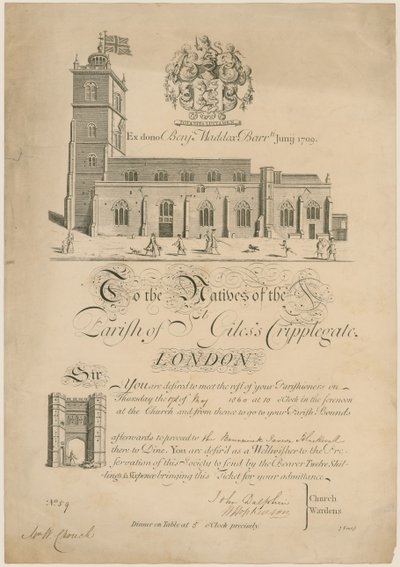 Ex dono Benj.ⁿ Maddox Barr.ᵗ Junij 1709.
To the Natives of the
Parish of S.ᵗ Giles's Cripplegate.
LONDON
Sir
You are desired to meet the rest of your Parishioners on
Thursday the of May 1860 at 10 o'Clock in the forenoon
at the Church and from thence to go to your Parish Bounds
afterwards to proceed to the Brunswick Tavern Blackwall
there to Dine. You are desir'd as a Wellwisher to the Pre-
servation of this Society to send by the Bearer Twelve Shil-
lings & Sixpence bringing this Ticket for your admittance.
John Dolphin
W Hopkinson
Church
Wardens
N.º 59
Mr W. Chouch
Dinner on Table at 5 o'Clock precisely.